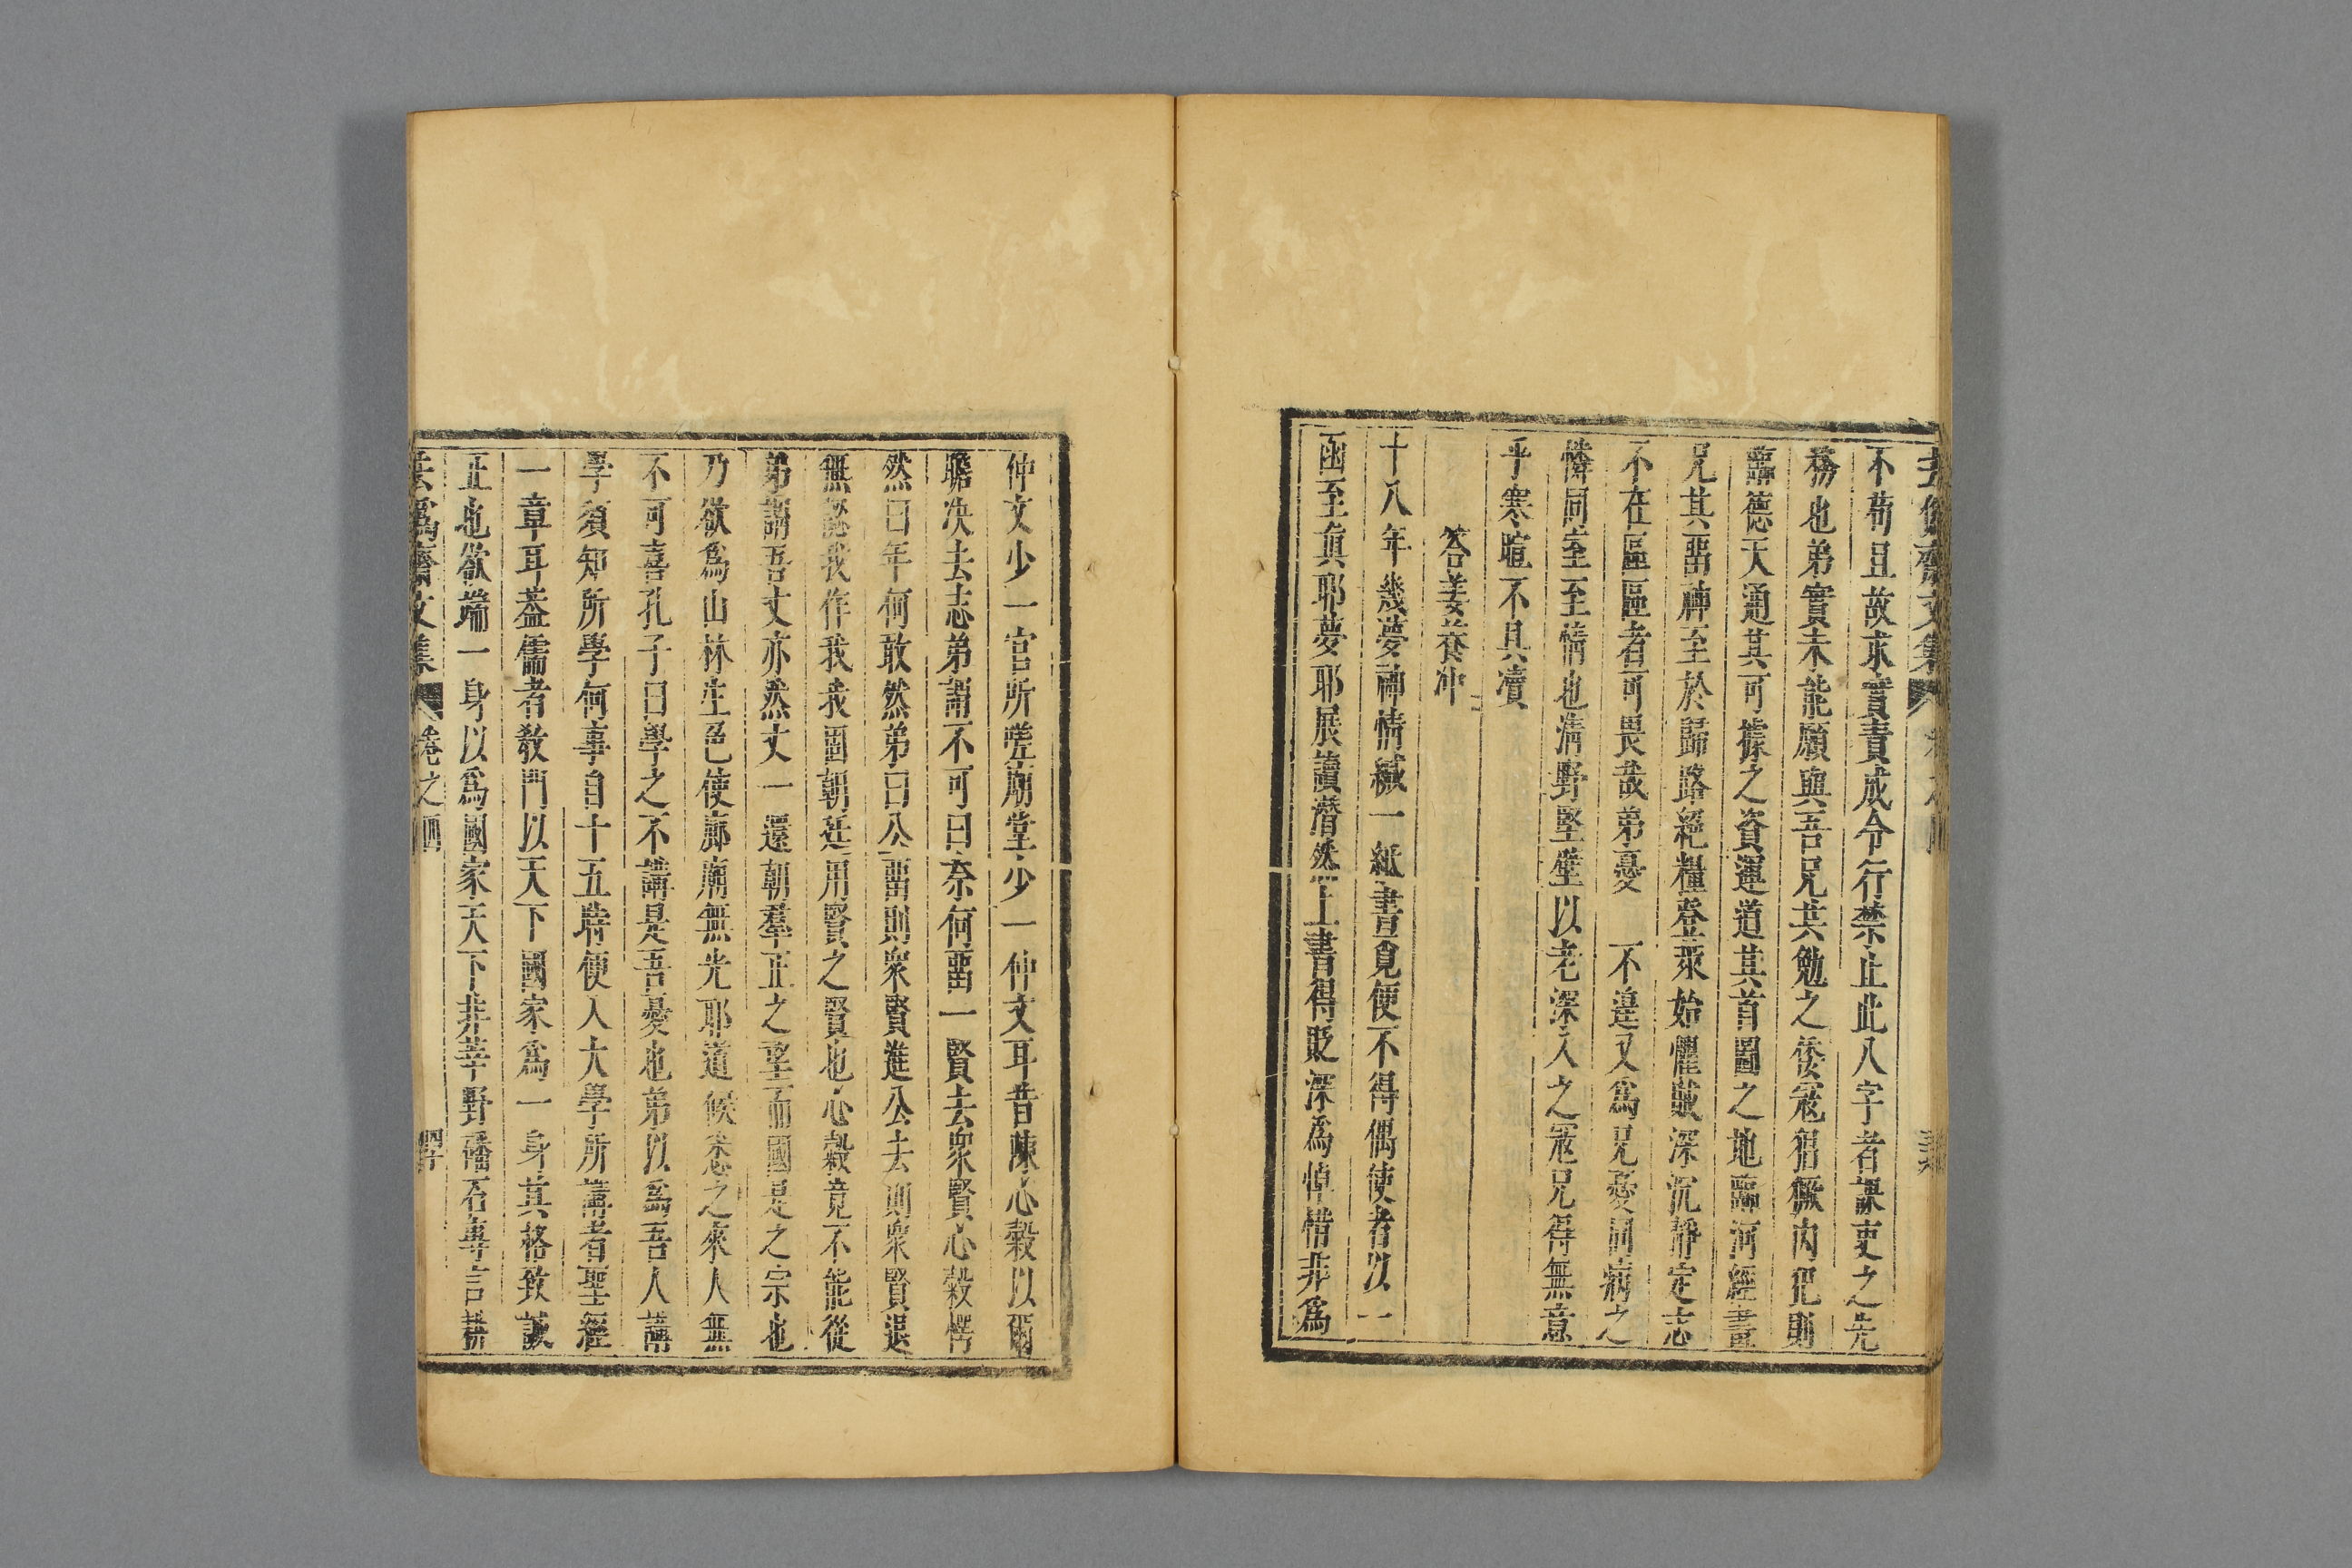 不苟且故求實責成令行禁止此八字者課吏之先
務也弟實未能願與吾兄共勉之倭寇猖獗内犯則
臨德天通其可據之資運道其首圖之地臨河經畫
兄其留神至於歸路絕糧登萊始懼賊深沉靜定志
不在區區者可畏哉弟憂 不遑又爲兄憂同病之
憐同室至情也清野堅壁以老深入之寇兄得無意
乎寒暄不具瀆
答姜養冲
十八年幾夢神情緘一紙書竟便不得偶使者以一
函至眞耶夢耶展讀潸然上書得貶深爲悼惜非爲
仲文少一官所嗟廟堂少一仲文耳昔陳心穀以爾
瞻决去志弟謂不可曰奈何留一賢去衆賢心穀愕
然曰年何敢然弟曰公留則衆賢進公去則衆賢退
無認我作我我國朝廷用賢之賢也心穀竟不能從
弟謂吾丈亦然丈一還朝羣正之望而國是之宗也
乃欲爲山林生色使廊廟無光耶道候忞之來人無
不可喜孔子曰學之不講是吾憂也弟以爲吾人講
學須知所學何事自十五時便入大學所講者聖經
一章耳葢儒者敎門以天下國家爲一身其格致誠
正也欲端一身以爲國家天下非莘野磻石專言耕
文集 卷之四 四十